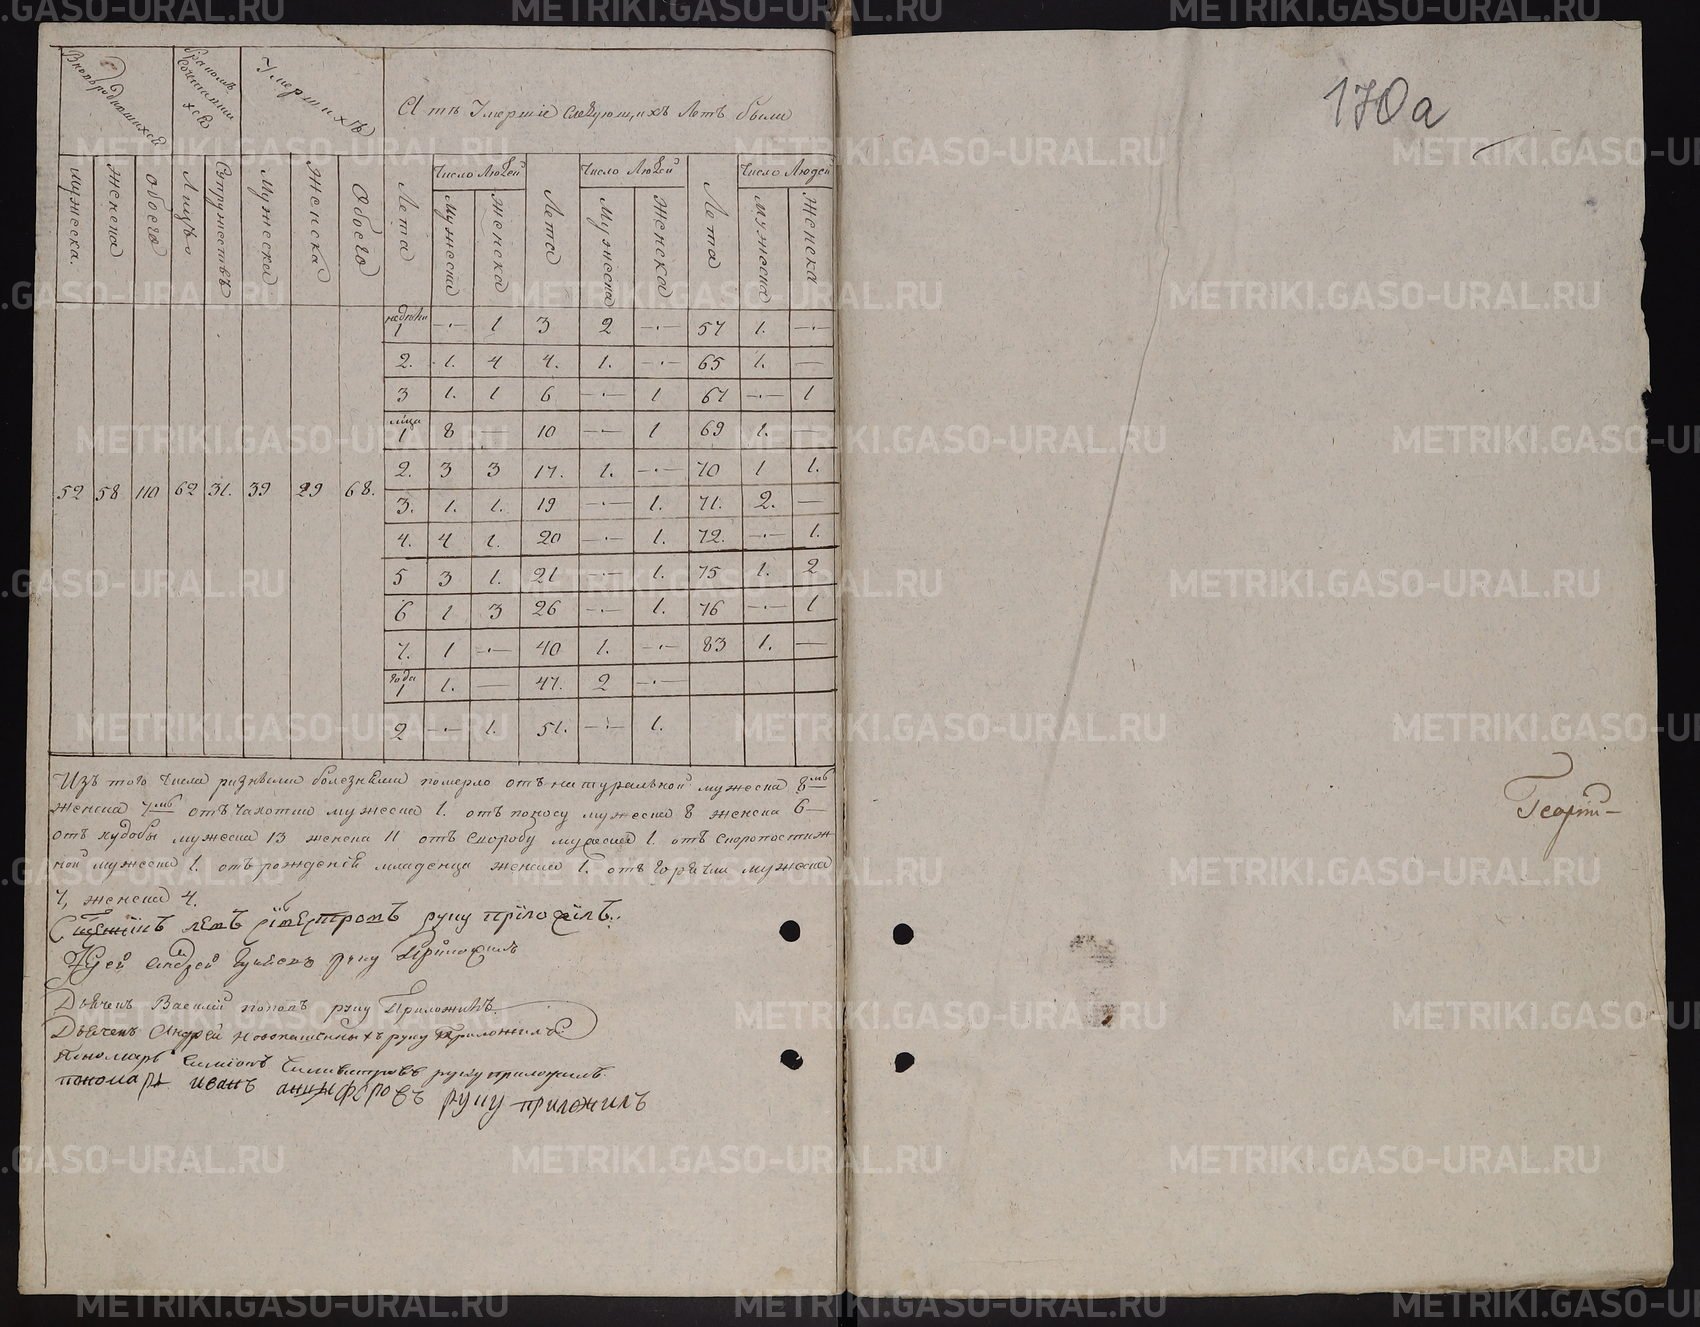 170а
Вновь родившихся
бракомъ сочетавшихся
Умершихъ
А тѣ Умершіе Следующихъ Летъ были
мужеска.
женска
обоего
Лицъ
Супружествъ
Мужеска
Женска
Обоего
Лета
Число Людей
Мужеска
женска
Лета
Число Людей
Мужеска
женска
Лета
Число Людей
мужеска
женска
52 58 110 62 31. 39 29 68.
недѣли
1 —·— 1 3 2 —·— 57 1. —·—
2. 1. 4 4. 1. —·— 65 1. —
3 1. 1 6 —·— 1 67 —·— 1
мѣсяца
1 8 — 10 —·— 1 69 1. —
2. 3 3 17. 1. —·— 70 1 1.
3. 1. 1. 19 —·— 1. 71. 2. —
4. 4 1. 20 —·— 1. 72. —·— 1.
5 3 1. 21 —·— 1. 75 1. 2
6 1 3 26 —·— 1. 76 —·— 1
7. 1 —·— 40 1. —·— 83 1. —
года
1 1. — 47. 2 —·—
2 —·— 1. 51. —·— 1.
Изъ того числа разными болезнями померло отъ натуральной мужеска 8мь
женска 7мь отъ чахотки мужеска 1. отъ поносу мужеска 8 женска 6—
отъ худобы мужеска 13 женска 11 отъ скорбу мужеска 1. отъ скоропостиж
ной мужеска 1. отъ рожденія младенца женска 1. отъ горячки мужеска
7, женска 4.
руку приложилъ.
Іерей Андрей руку Приложилъ
Дьячекъ Василій поповъ руку Приложилъ.
Дьячекъ Андрей Новопашенныхъ руку приложилъ
Пономарь Симіонъ Силивестровъ руку приложилъ.
пономарь иванъ анциферовъ руку приложилъ
Георги-
METRIKI.GASO-URAL.RU